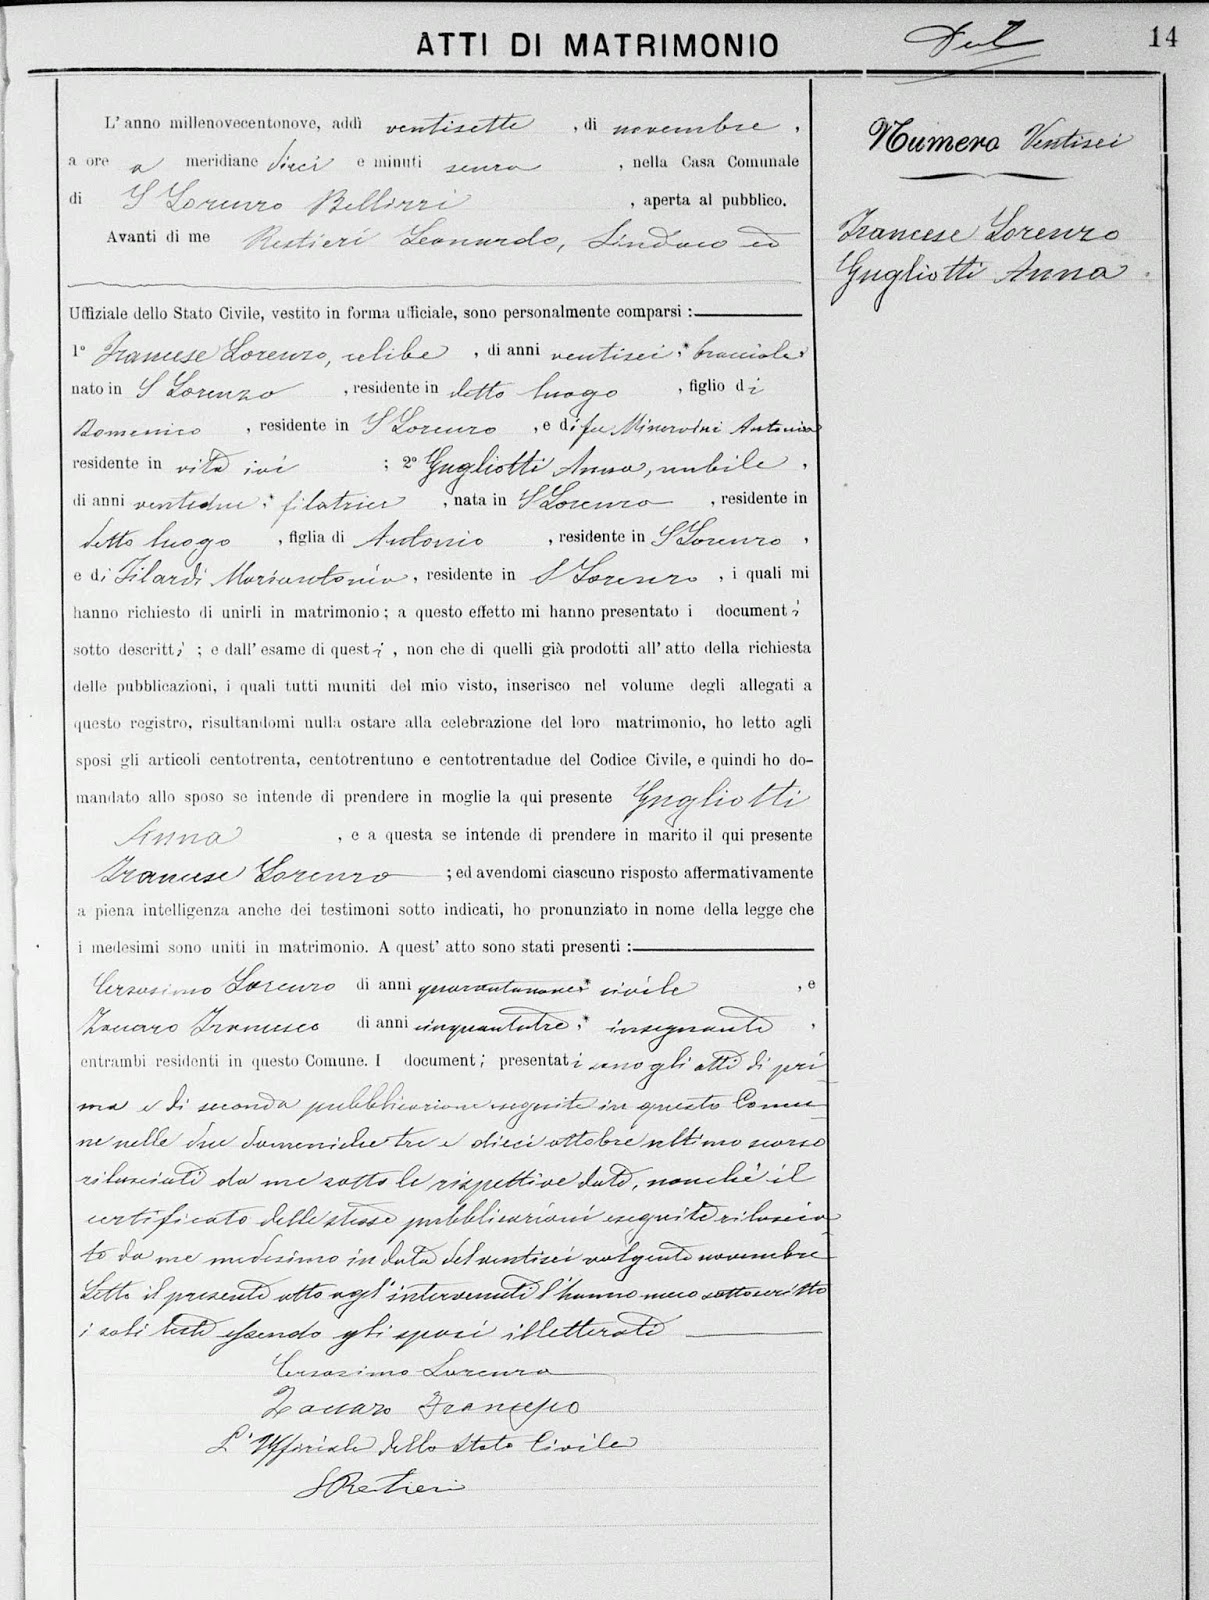 ATTI DI MATRIMONIO
14
L'anno millenovecentonove, addì ventisette, di novembre,
a ore a meridiane dieci e minuti senza, nella Casa Comunale
di S Lorenzo Bellizzi, aperta al pubblico.
Avanti di me Restieri Leonardo, Sindaco ed
Uffiziale dello Stato Civile, vestito in forma ufficiale, sono personalmente comparsi:
1º Francese Lorenzo, celibe, di anni ventisei, bracciale
nato in S Lorenzo, residente in detto luogo, figlio di
Domenico, residente in S Lorenzo, e di fu Minervini Antonia
residente in vita ivi; 2º Gugliotti Anna, nubile,
di anni ventidue, filatrice, nata in S Lorenzo, residente in
detto luogo, figlia di Antonio, residente in S Lorenzo,
e di Filardi Mariantonia, residente in S Lorenzo, i quali mi
hanno richiesto di unirli in matrimonio; a questo effetto mi hanno presentato i documenti
sotto descritti; e dall'esame di questi, non che di quelli già prodotti all'atto della richiesta
delle pubblicazioni, i quali tutti muniti del mio visto, inserisco nel volume degli allegati a
questo registro, risultandomi nulla ostare alla celebrazione del loro matrimonio, ho letto agli
sposi gli articoli centotrenta, centotrentuno e centotrentadue del Codice Civile, e quindi ho do-
mandato allo sposo se intende di prendere in moglie la qui presente Gugliotti
Anna, e a questa se intende di prendere in marito il qui presente
Francese Lorenzo; ed avendomi ciascuno risposto affermativamente
a piena intelligenza anche dei testimoni sotto indicati, ho pronunziato in nome della legge che
i medesimi sono uniti in matrimonio. A quest'atto sono stati presenti:
Cersosimo Lorenzo di anni quarantanove, civile, e
Zaccaro Francesco di anni cinquantatre, insegnante,
entrambi residenti in questo Comune. I documenti presentati sono gli atti di pri
ma e di seconda pubblicazione eseguite in questo Comu
ne nelle due domeniche tre e dieci ottobre ultimo scorso
rilasciati da me sotto le rispettive date, nonchè il
certificato delle stesse pubblicazioni eseguite rilascia
to da me medesimo in data del ventisei volgente novembre
Letto il presente atto agl'intervenuti l'hanno meco sottoscritto
i soli testi essendo gli sposi illetterati
Cersosimo Lorenzo
Zaccaro Francesco
L'Uffiziale dello Stato Civile
LRestieri
Numero Ventisei
Francese Lorenzo
Gugliotti Anna